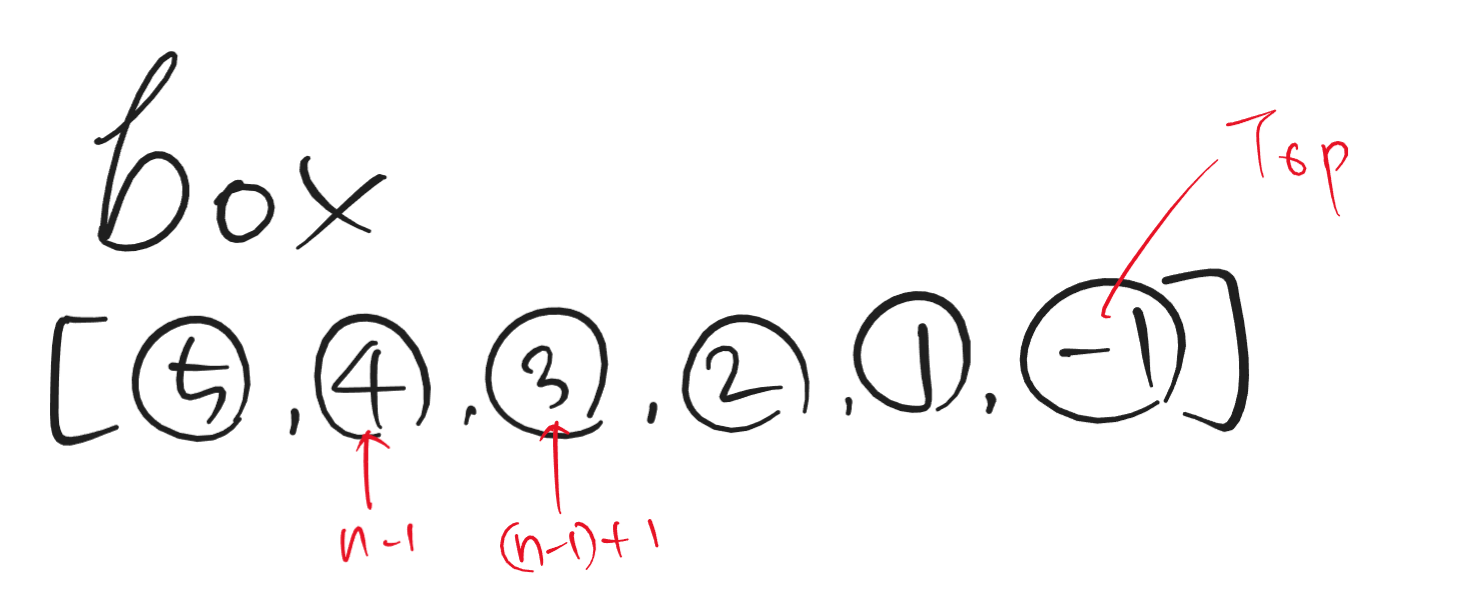 box
Top
[5, 4, 3, 2, 1, -1]
n-1 (n-1)+1